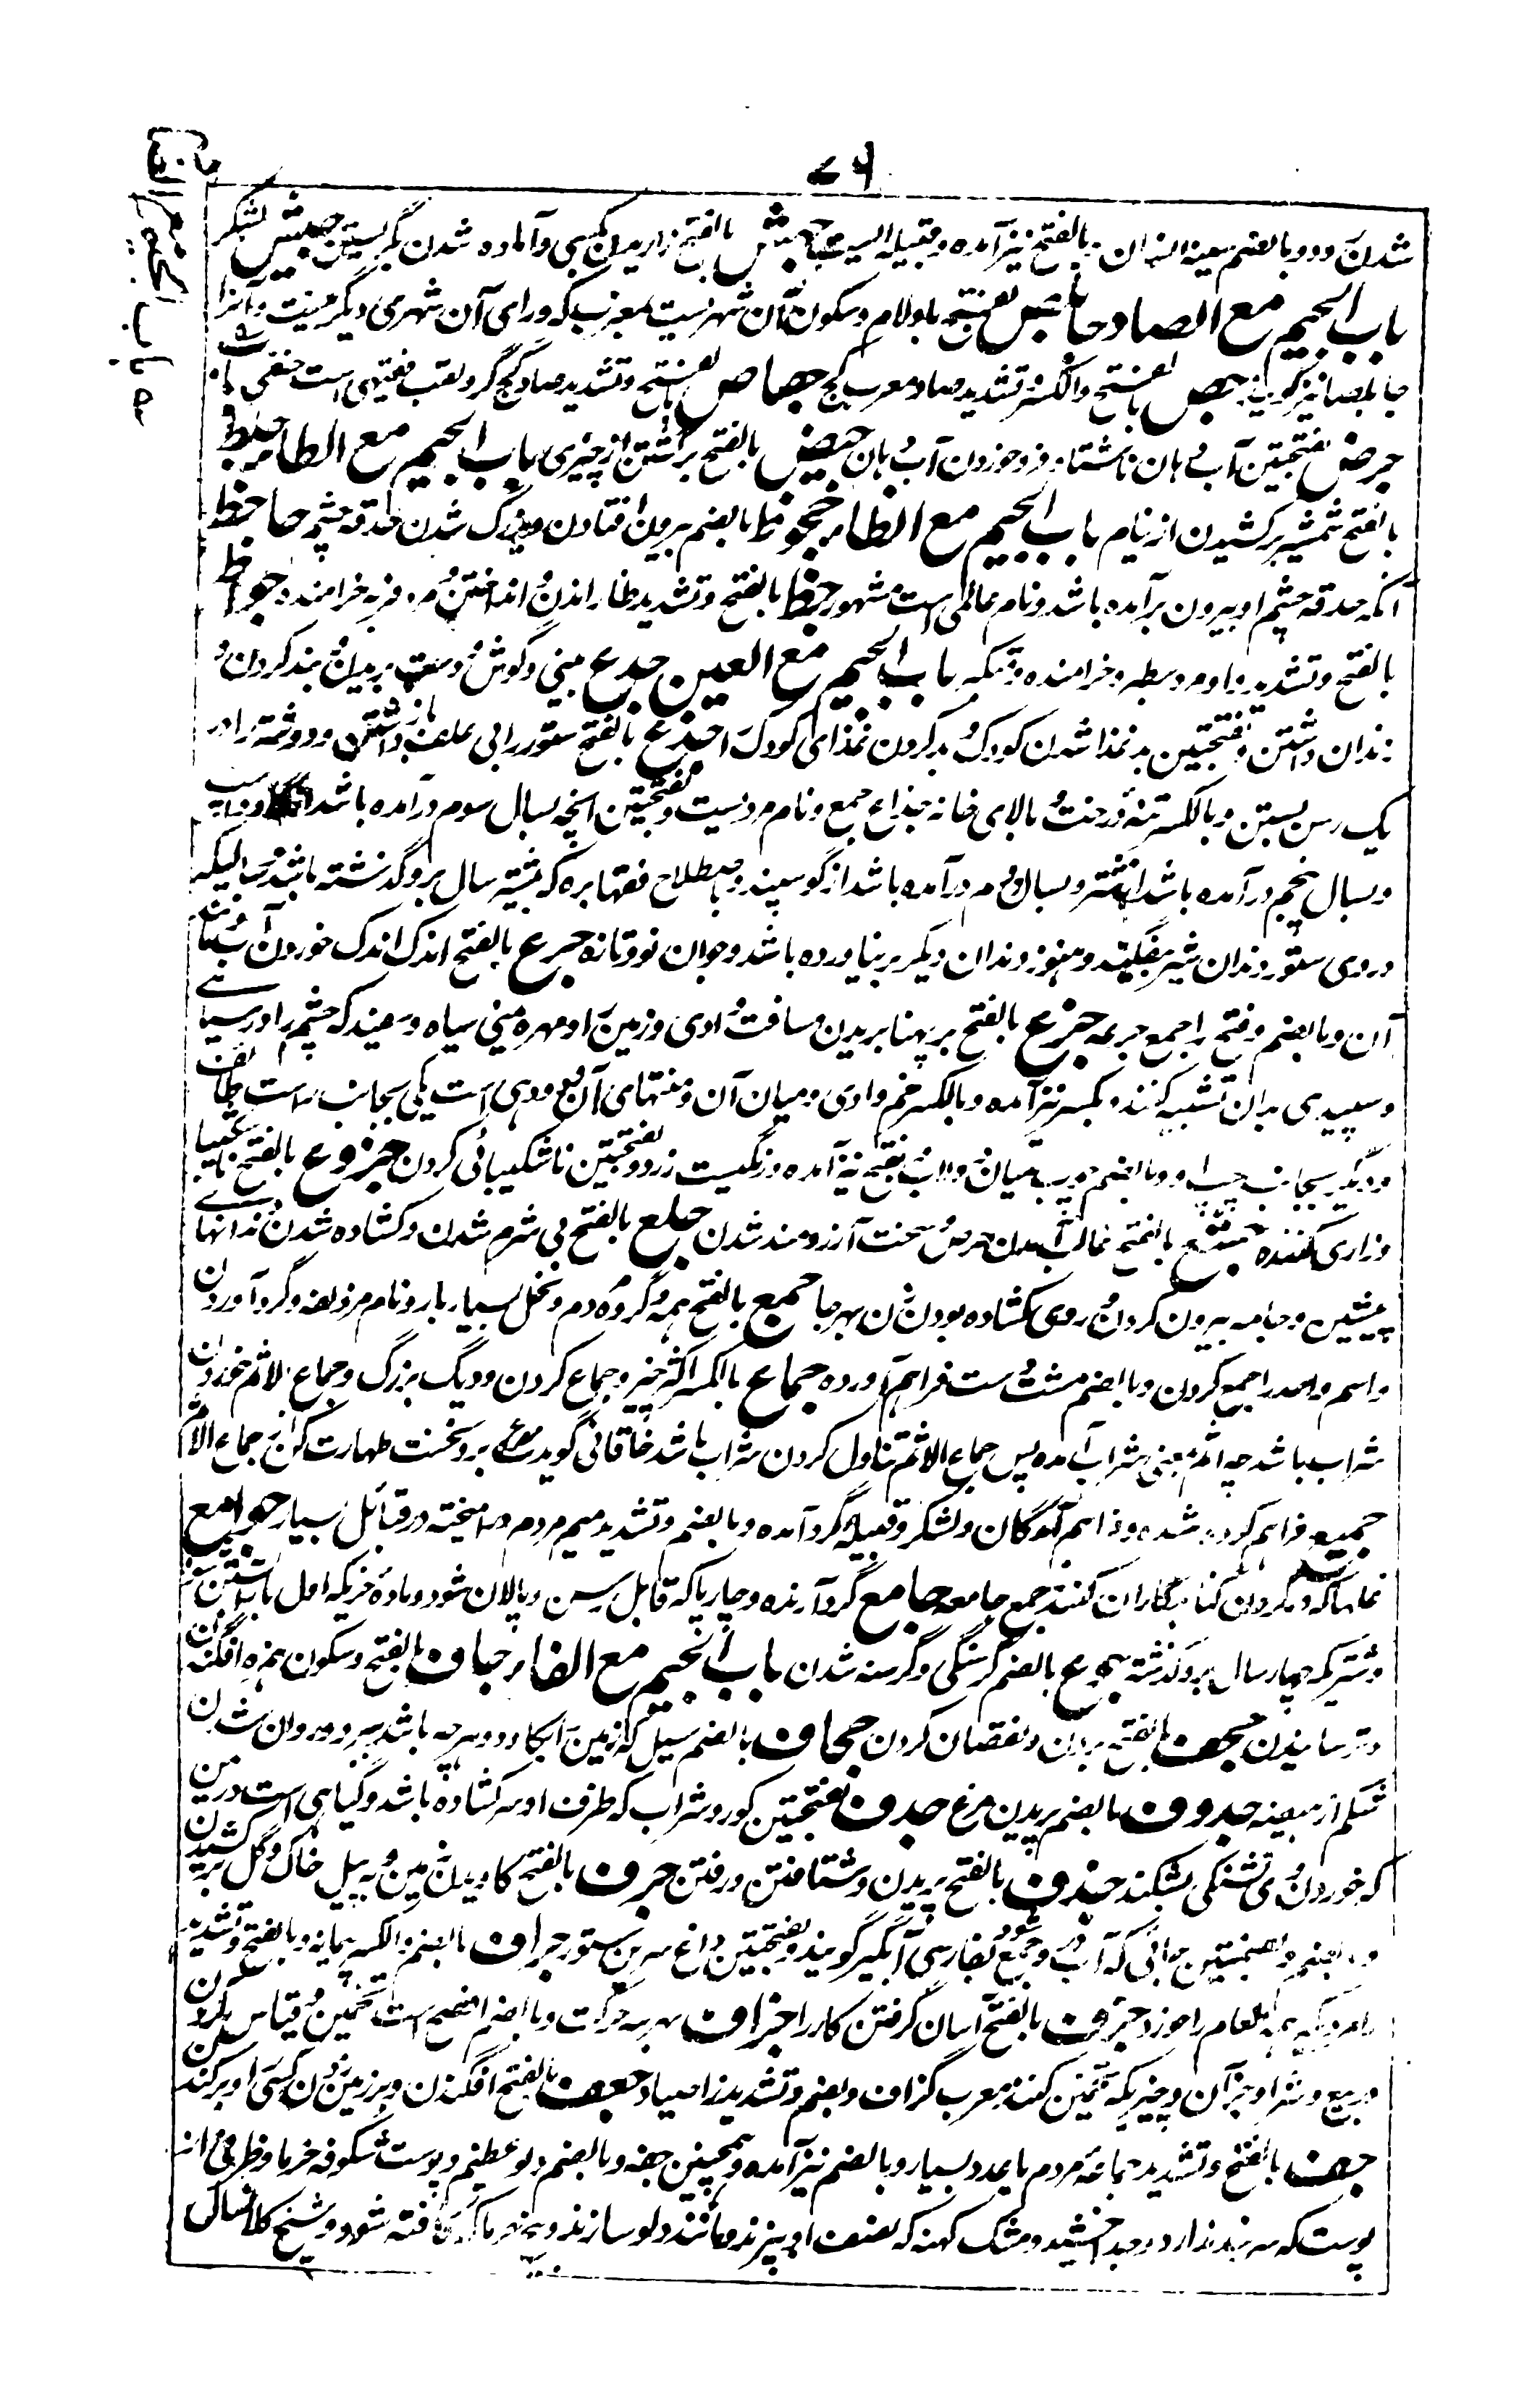 ۷۶
شدن و دو بالضم سینه انسان و بالفتح نیز آمده و قبیله ایست جاحش بالفتح زاریدن بکسی و آماده شدن گریستن جیش لشکر
باب الجیم مع الصاد جابلص بفتح با و لام و سکون آن شهریست بمغرب که ورای آن شهری دیگر نیست و آنرا
جابلصا نیز گویند جص بالفتح و الکسر و تشدید صاد معرب گچ جصاص بالفتح و تشدید صاد گچ گر و لقب فقیهی است حنفی باب
جرض بفتحتین آب دهان ناشتا و فرو خوردن آب دهان جیض بالفتح برگشتن از چیزی باب الجیم مع الطاء جلط
بالفتح شمشیر برکشیدن از نیام باب الجیم مع الظاء جحوظ بالضم بیرون افتادن و بزرگ شدن حدقه چشم جاحظ
آنکه حدقه چشم او بیرون برآمده باشد و نام عالمی است مشهور جظ بالفتح و تشدید ظا راندن و انداختن و مرد فربه خرامنده جواظ
بالفتح و تشدید واو مرد سطبر و خرامنده و متکبر باب الجیم مع العین جدع بینی و گوش و دست بریدن و بند کردن و
زندان داشتن و بفتحتین بد غذا شدن کودک و بد کردن غذای کودک را جذع بالفتح ستور را بی علف بازداشتن و دو شتر را در
یک رسن بستن و بالکسر تنه درخت و بالای خانه جذاع جمع و نام مردیست و بفتحتین آنچه بسال سوم درآمده باشد از گاو و اسپ
و بسال پنجم درآمده باشد از شتر و بسال دوم درآمده باشد از گوسپند و باصطلاح فقها بره که بیشتر سال برو گذشته باشد و سالیکه
در وی ستور دندان شیر بیفگند و هنوز دندان دیگر برنیاورده باشد و جوان نو و تازه جرع بالفتح اندک اندک خوردن آب و مانند
آن و بالضم و فتح را جمع جرعه جزع بالفتح بر پهنا بریدن مسافت وادی و زمین را و مهره یمنی سیاه و سفید که چشم را در سیاهی
و سپیدی بدان تشبیه کنند و بکسر نیز آمده و بالکسر خم وادی و میان آن و منتهای آن و دو دهی است یکی بجانب راست طائف
و دیگر بجانب چپ او و بالضم چوب میان دولاب و بفتح نیز آمده و رنگیست زرد و بفتحتین ناشکیبائی کردن جزوع بالفتح ناشکیبا
و زاری کننده جشع بالفتح غالب آمدن حرص و سخت آرزومند شدن جلع بالفتح بی شرم شدن و کشاده شدن دندانهای
پیشین و جامه بیرون کردن و روی کشاده بودن زن بهر جا جمع بالفتح همه و گروه مردم و نخل بسیار بار و نام مزدلفه و گرد آوردن
و اسم واحد را جمع کردن و بالضم مشت دست فراهم آورده جماع بالکسر اکثر چیز و جماع کردن و دیگ بزرگ و جماع الاثم خوردن
شراب باشد چه اثم بمعنی شراب آمده پس جماع الاثم تناول کردن شراب باشد خاقانی گوید مصرع برو نخست طهارت کن از جماع الاثم
جمیع فراهم کرده شده و فراهم آمدگان و لشکر و قبیله گرد آمده و بالضم و تشدید میم مردم درآمیخته در قبائل بسیار جوامع
غلها که در گردن گناهگاران کنند جمع جامعه جامع گرد آرنده و چارپا که قابل رسن و پالان شود و ماده خریکه اول بار آبستن شود
و شتریکه چهار سال برو گذشته جوع بالضم گرسنگی و گرسنه شدن باب الجیم مع الفاء جیاف بالفتح و سکون همزه افگندن
و ترسانیدن جحف بالفتح بردن و نقصان کردن جحاف بالضم سیل که زمین را بکاود و هر چه باشد ببرد و روان شدن
شکم از هیضه جدوف بالضم پریدن مرغ جدف بفتحتین گور و شراب که ظرف او سر کشاده باشد و گیاهی است در یمن
که خوردن وی تشنگی بشکند جذف بالفتح پریدن و شتافتن در رفتن جرف بالفتح کاویدن زمین و به بیل خاک و گل برکشیدن
و بالضم و بضمتین جوائی که آب در و جمع شود بفارسی آبگیر گویند و بفتحتین داغ سرین ستور جراف بالضم و الکسر پیمانه و بالفتح و تشدید
را مردیکه همه طعام را خورد جزف بالفتح آسان گرفتن کار را جزاف بهر سه حرکت و بالضم افصح است تخمین و قیاس کردن
در بیع و شرا و جز آن و چیزیکه تخمین کنند معرب گزاف و بضم و تشدید زا صیاد جعف بالفتح افگندن و بر زمین زدن کسی را و برکندن
جف بالفتح و تشدید جماعه مردم یا عدد بسیار و بالضم نیز آمده و همچنین جفه و بالضم دلو عظیم و پوست شگوفه خرما و ظرفی از
پوست که سر بند ندارد و جد اخشید و مشک کهنه که نصف او ببرند و مانند دلو سازند و بیخ خرما که کافته شود و شیخ کلانسال